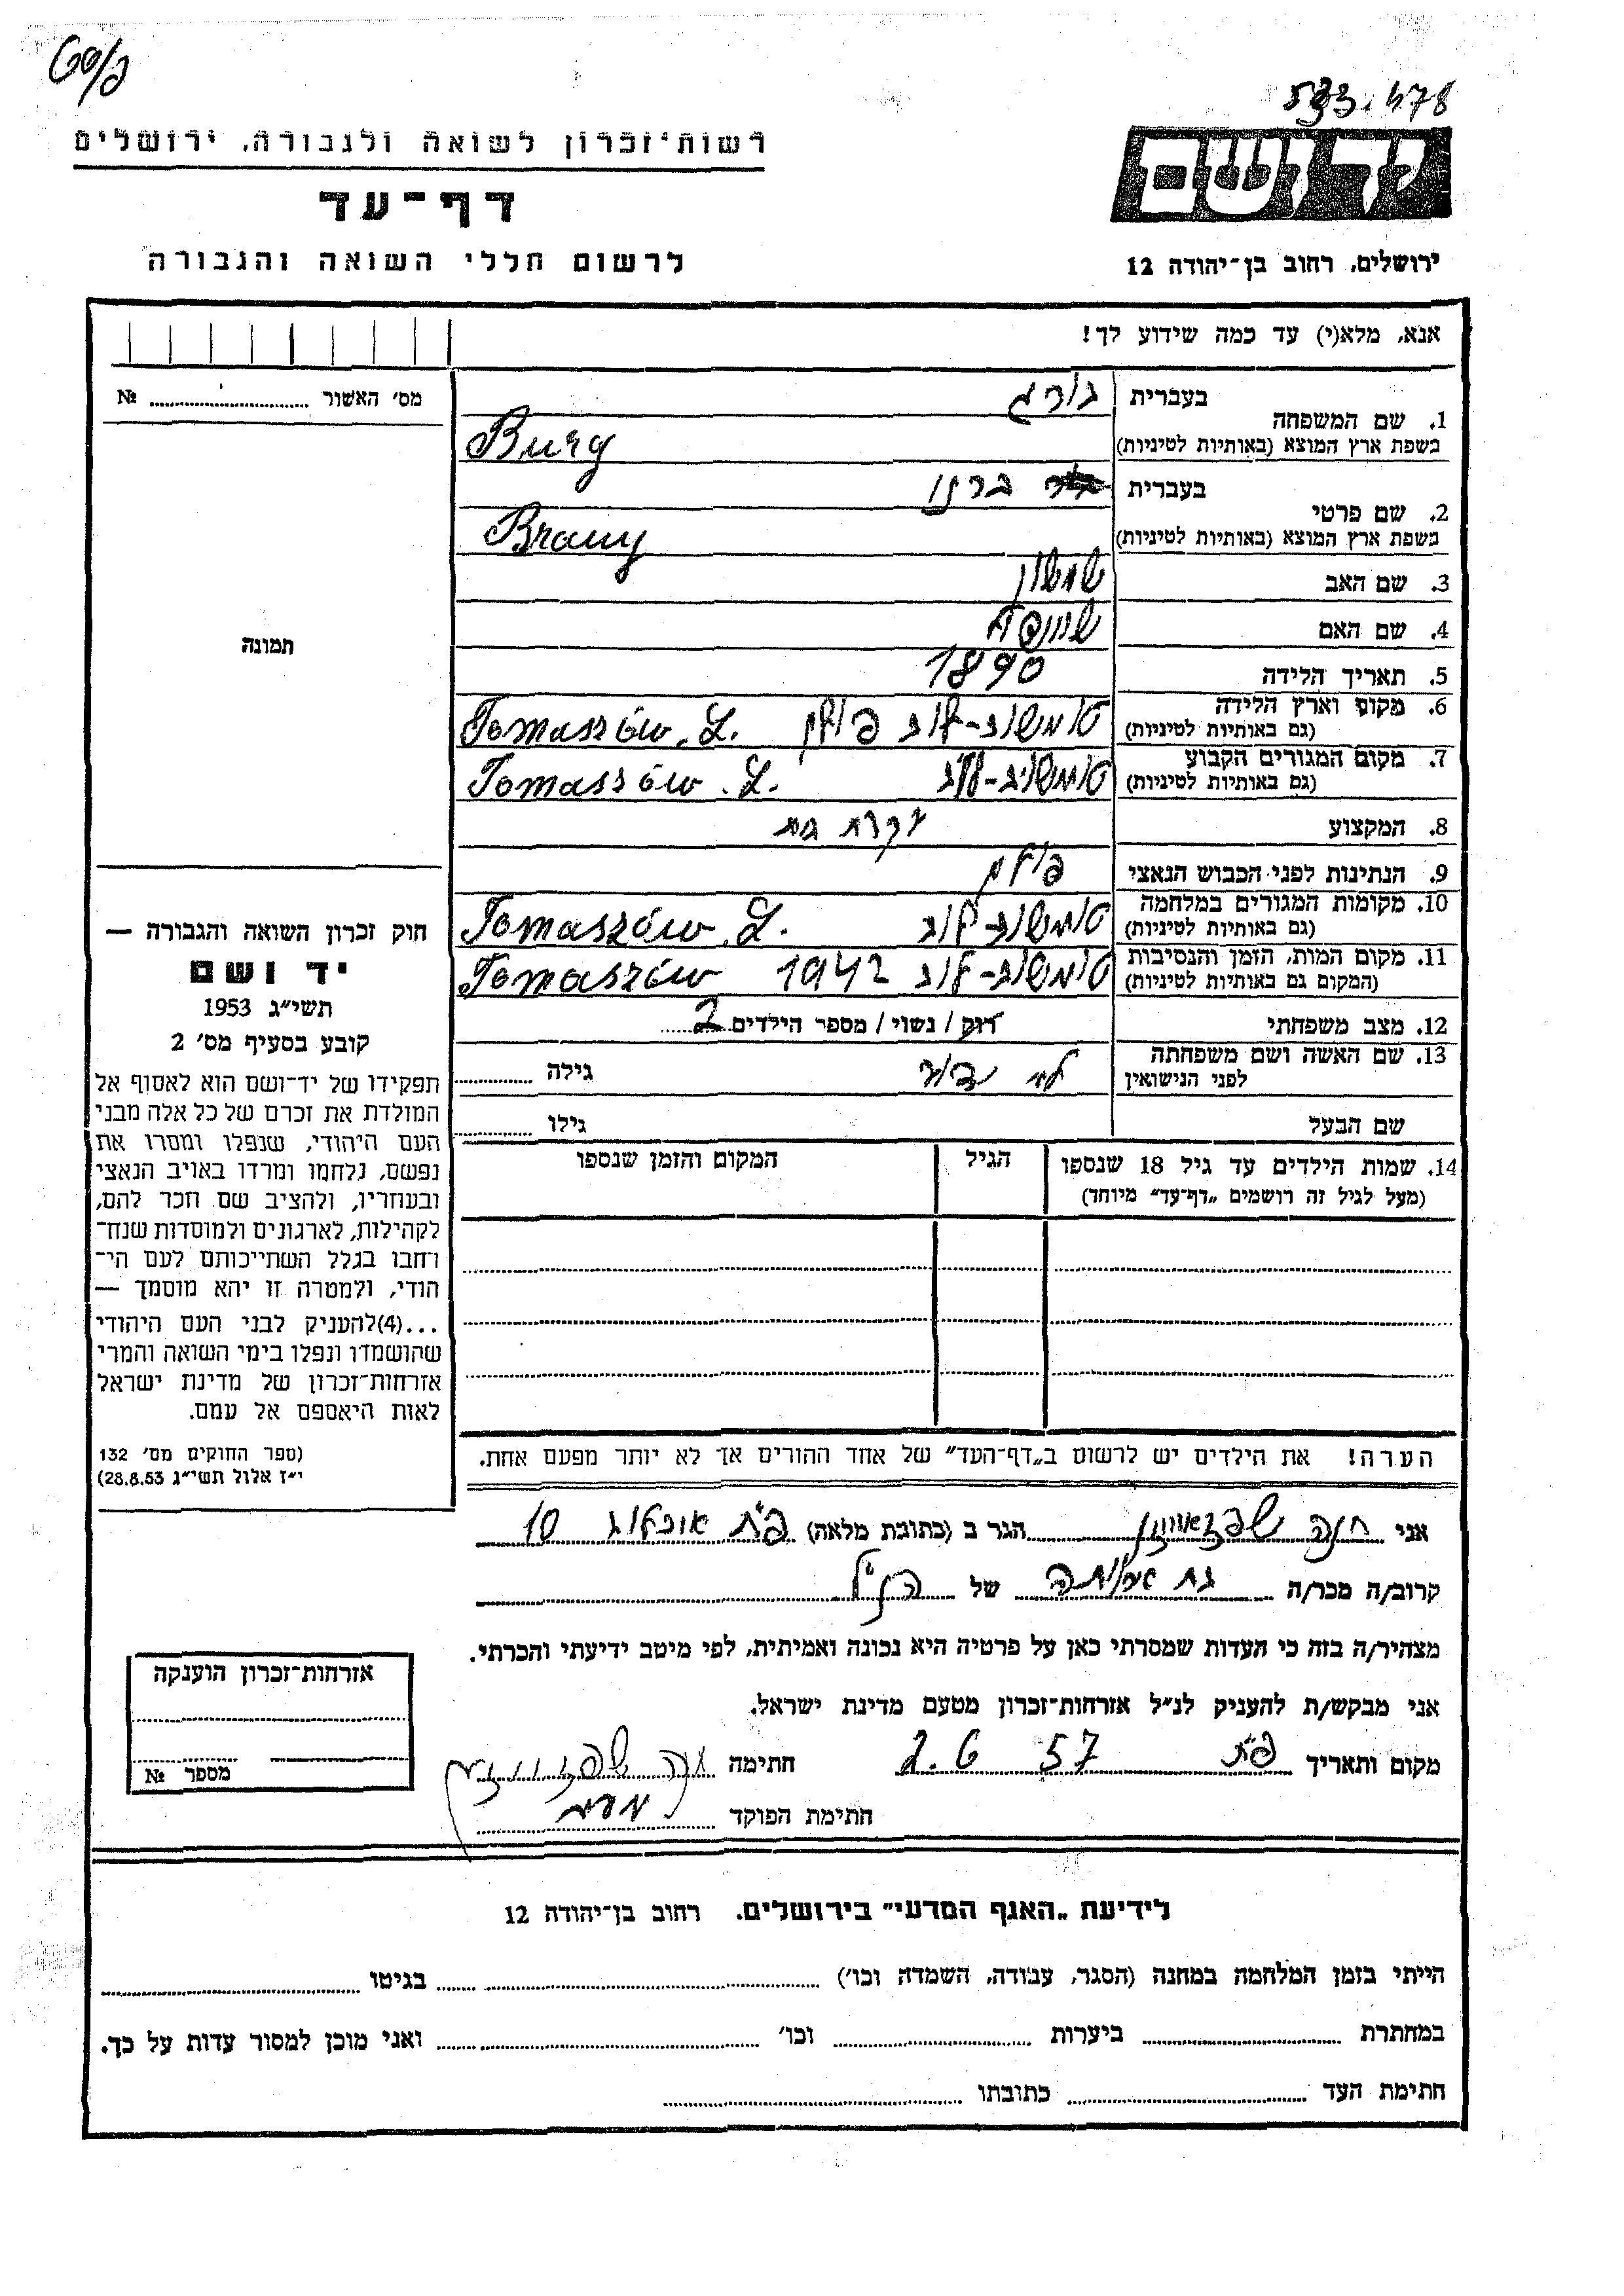 פ/סט
533.478
רשות־זכרון לשואה ולגבורה, ירושלים
ידושם
דף־עד
לרשום חללי השואה והגבורה
ירושלים, רחוב בן־יהודה 12
אנא, מלא(י) עד כמה שידוע לך!
מס׳ האשור № 
בעברית
1. שם המשפחה
בשפת ארץ המוצא (באותיות לטיניות) Burg
בעברית
2. שם פרטי
בשפת ארץ המוצא (באותיות לטיניות)
3. שם האב שמשון
4. שם האם
5. תאריך הלידה 1890
6. מקום וארץ הלידה טומשוב-לוב פולין Tomaszów. L.
(גם באותיות לטיניות)
7. מקום המגורים הקבוע טומשוב-לוב Tomaszów. L.
(גם באותיות לטיניות)
8. המקצוע עקרת בית
9. הנתינות לפני הכבוש הנאצי פולין
10. מקומות המגורים במלחמה טומשוב-לוב Tomaszów. L.
(גם באותיות לטיניות)
11. מקום המות, הזמן והנסיבות טומשוב-לוב 1942 Tomaszów
(המקום גם באותיות לטיניות)
12. מצב משפחתי רוק / נשוי / מספר הילדים 2
13. שם האשה ושם משפחתה
לפני הנישואין
גילה
שם הבעל
גילו
14. שמות הילדים עד גיל 18 שנספו
(מעל לגיל זה רושמים „דף־עד״ מיוחד)
הגיל
המקום והזמן שנספו
הערה! את הילדים יש לרשום ב„דף־העד״ של אחד ההורים אך לא יותר מפעם אחת.
תמונה
חוק זכרון השואה והגבורה —
יד ושם
תשי״ג 1953
קובע בסעיף מס׳ 2
תפקידו של יד־ושם הוא לאסוף אל
המולדת את זכרם של כל אלה מבני
העם היהודי, שנפלו ומסרו את
נפשם, נלחמו ומרדו באויב הנאצי
ובעוזריו, ולהציב שם וזכר להם,
לקהילות, לארגונים ולמוסדות שנח־
רחבו בגלל השתייכותם לעם הי־
הודי, ולמטרה זו יהא מוסמך —
...(4)להעניק לבני העם היהודי
שהושמדו ונפלו בימי השואה והמרי
אזרחות־זכרון של מדינת ישראל
לאות היאספם אל עמם.
(ספר החוקים מס׳ 132
י״ז אלול תשי״ג 28.8.53)
אני חנה הגר ב (כתובת מלאה) פ״ת 10
קרוב/ה מכר/ה של הנ״ל
מצהיר/ה בזה כי העדות שמסרתי כאן על פרטיה היא נכונה ואמיתית, לפי מיטב ידיעתי והכרתי.
אני מבקש/ת להעניק לנ״ל אזרחות־זכרון מטעם מדינת ישראל.
מקום ותאריך פ״ת 2.6 57 חתימה
חתימת הפוקד
אזרחות־זכרון הוענקה
מספר №
לידיעת „האגף המדעי״ בירושלים. רחוב בן־יהודה 12
הייתי בזמן המלחמה במחנה (הסגר, עבודה, השמדה וכו׳) בגיטו
במחתרת ביערות וכו׳ ואני מוכן למסור עדות על כך.
חתימת העד כתובתו